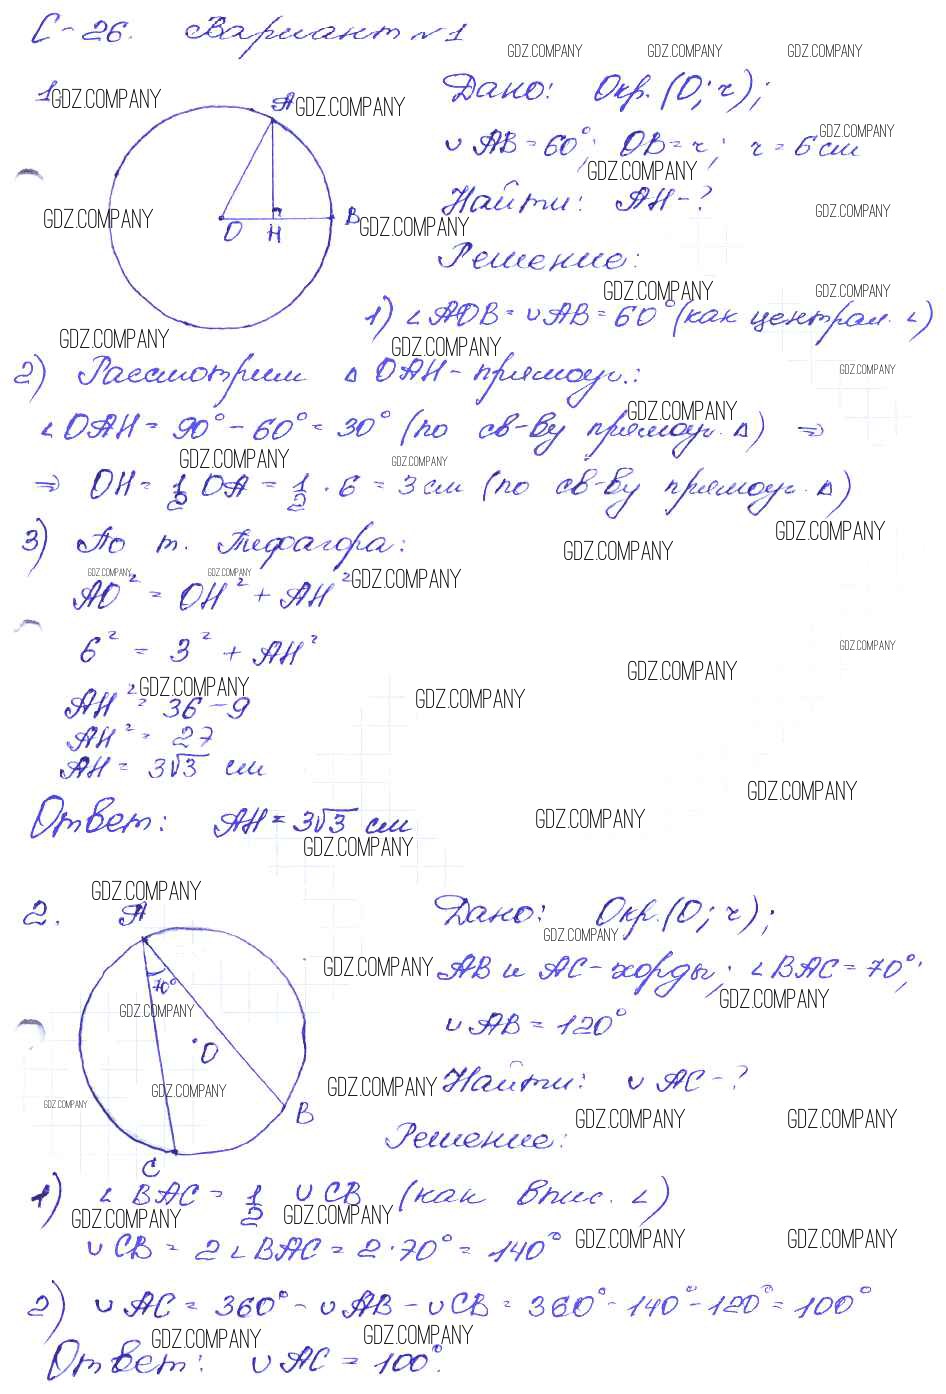 С-26. Вариант №1
1.
Дано: Окр. (O; r);
∪ AB = 60°; OB = r; r = 6 см
Найти: AH - ?
Решение:
A
O
H
B
1) ∠ AOB = ∪ AB = 60° (как централ. ∠)
2) Рассмотрим △ OAH - прямоуг.:
∠ OAH = 90° - 60° = 30° (по св-ву прямоуг. △) ⇒
⇒ OH = 1/2 OA = 1/2 · 6 = 3 см (по св-ву прямоуг. △)
3) По т. Пифагора:
AO² = OH² + AH²
6² = 3² + AH²
AH² = 36 - 9
AH² = 27
AH = 3√3 см
Ответ: AH = 3√3 см
2.
A
70°
O
B
C
Дано: Окр. (O; r);
AB и AC - хорды; ∠ BAC = 70°;
∪ AB = 120°
Найти: ∪ AC - ?
Решение:
1) ∠ BAC = 1/2 ∪ CB (как впис. ∠)
∪ CB = 2 ∠ BAC = 2 · 70° = 140°
2) ∪ AC = 360° - ∪ AB - ∪ CB = 360° - 140° - 120° = 100°
Ответ: ∪ AC = 100°.
GDZ.COMPANY